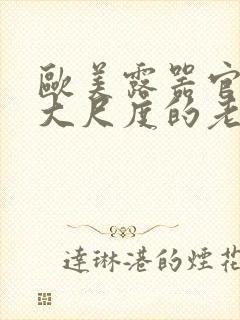 歐美露器官
大尺度的老
達琳港的煙花